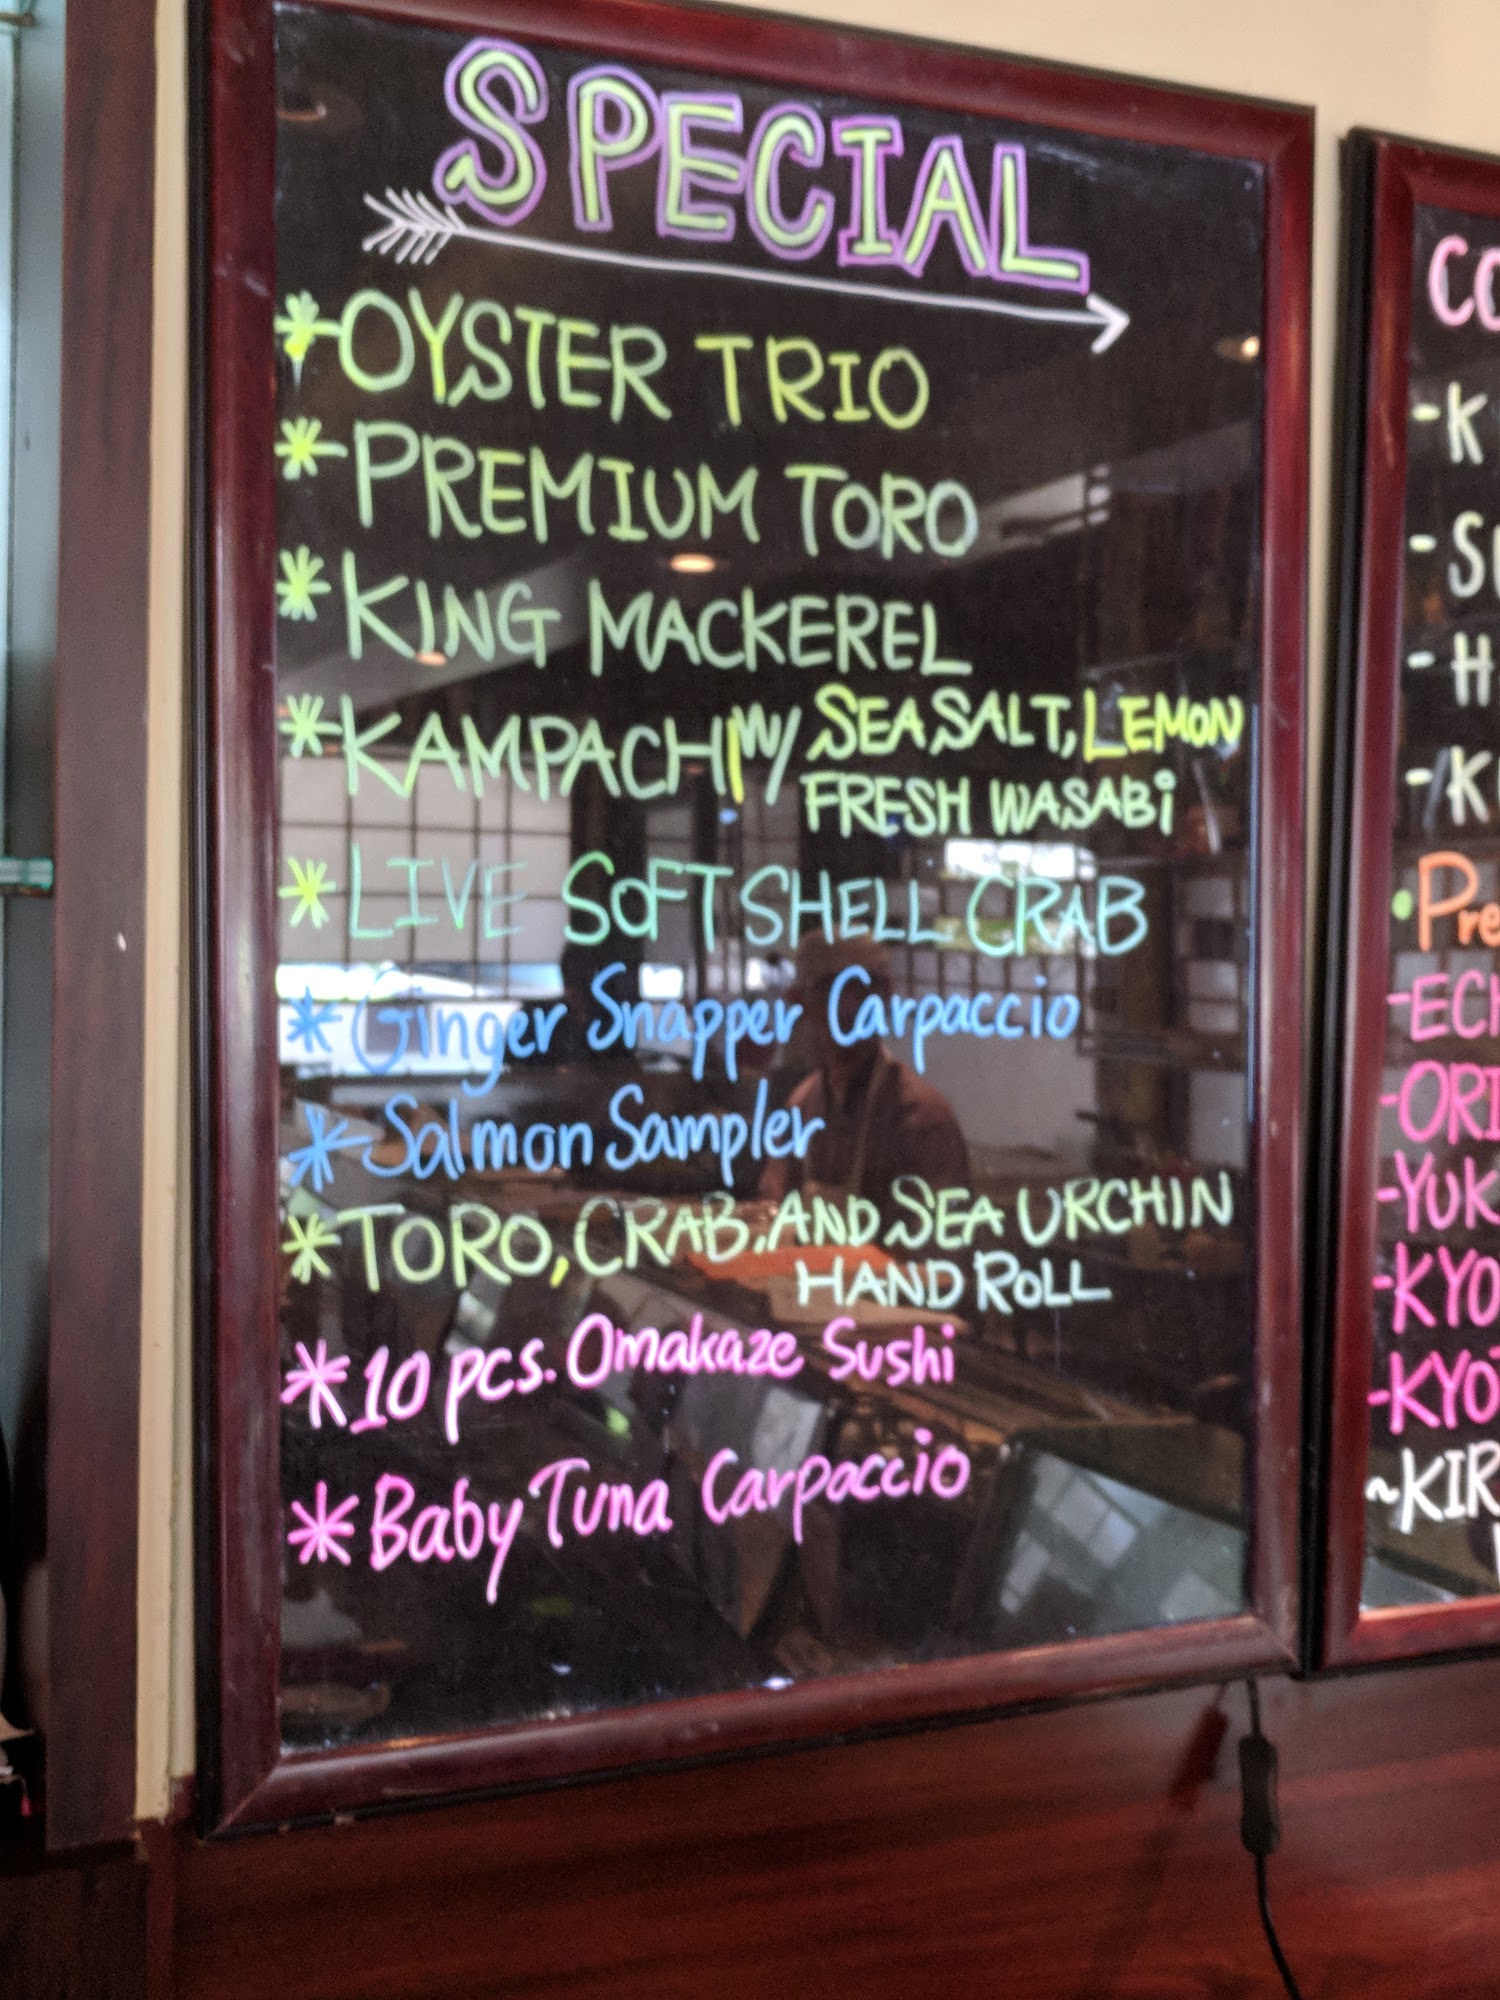 SPECIAL
*OYSTER TRIO
*PREMIUM TORO
*KING MACKEREL
*KAMPACHI W/ SEA SALT, LEMON
FRESH WASABi
*LIVE SOFT SHELL CRAB
*Ginger Snapper Carpaccio
*Salmon Sampler
*TORO, CRAB, AND SEA URCHIN
HAND ROLL
*10 pcs. Omakaze Sushi
*Baby Tuna Carpaccio